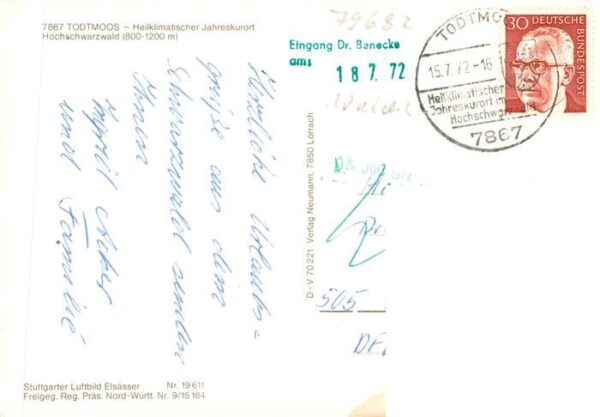 7867 TODTMOOS – Heilklimatischer Jahreskurort
Hochschwarzwald (800-1200 m)
Herzliche Urlaubs=
grüße aus dem
Schwarzwald senden
Ihnen
und Familie
Stuttgarter Luftbild Elsässer Nr. 19 611
Freigeg. Reg. Präs. Nord-Württ. Nr. 9/15 184
D - V 70 221 Verlag Neumann, 7850 Lörrach
79682
Eingang Dr. Benecke
am:
18 7. 72
TODTMOOS
15.7.72-16
Heilklimatischer
Jahreskurort im
Hochschwarz
7867
30 DEUTSCHE
BUNDESPOST
505